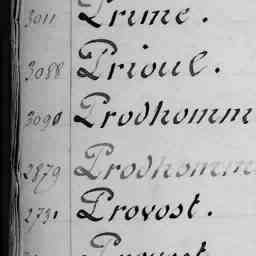 3011 Prime.
3088 Prioul.
3090 Prodhomm
2879 Prodhomm
2731 Provost.